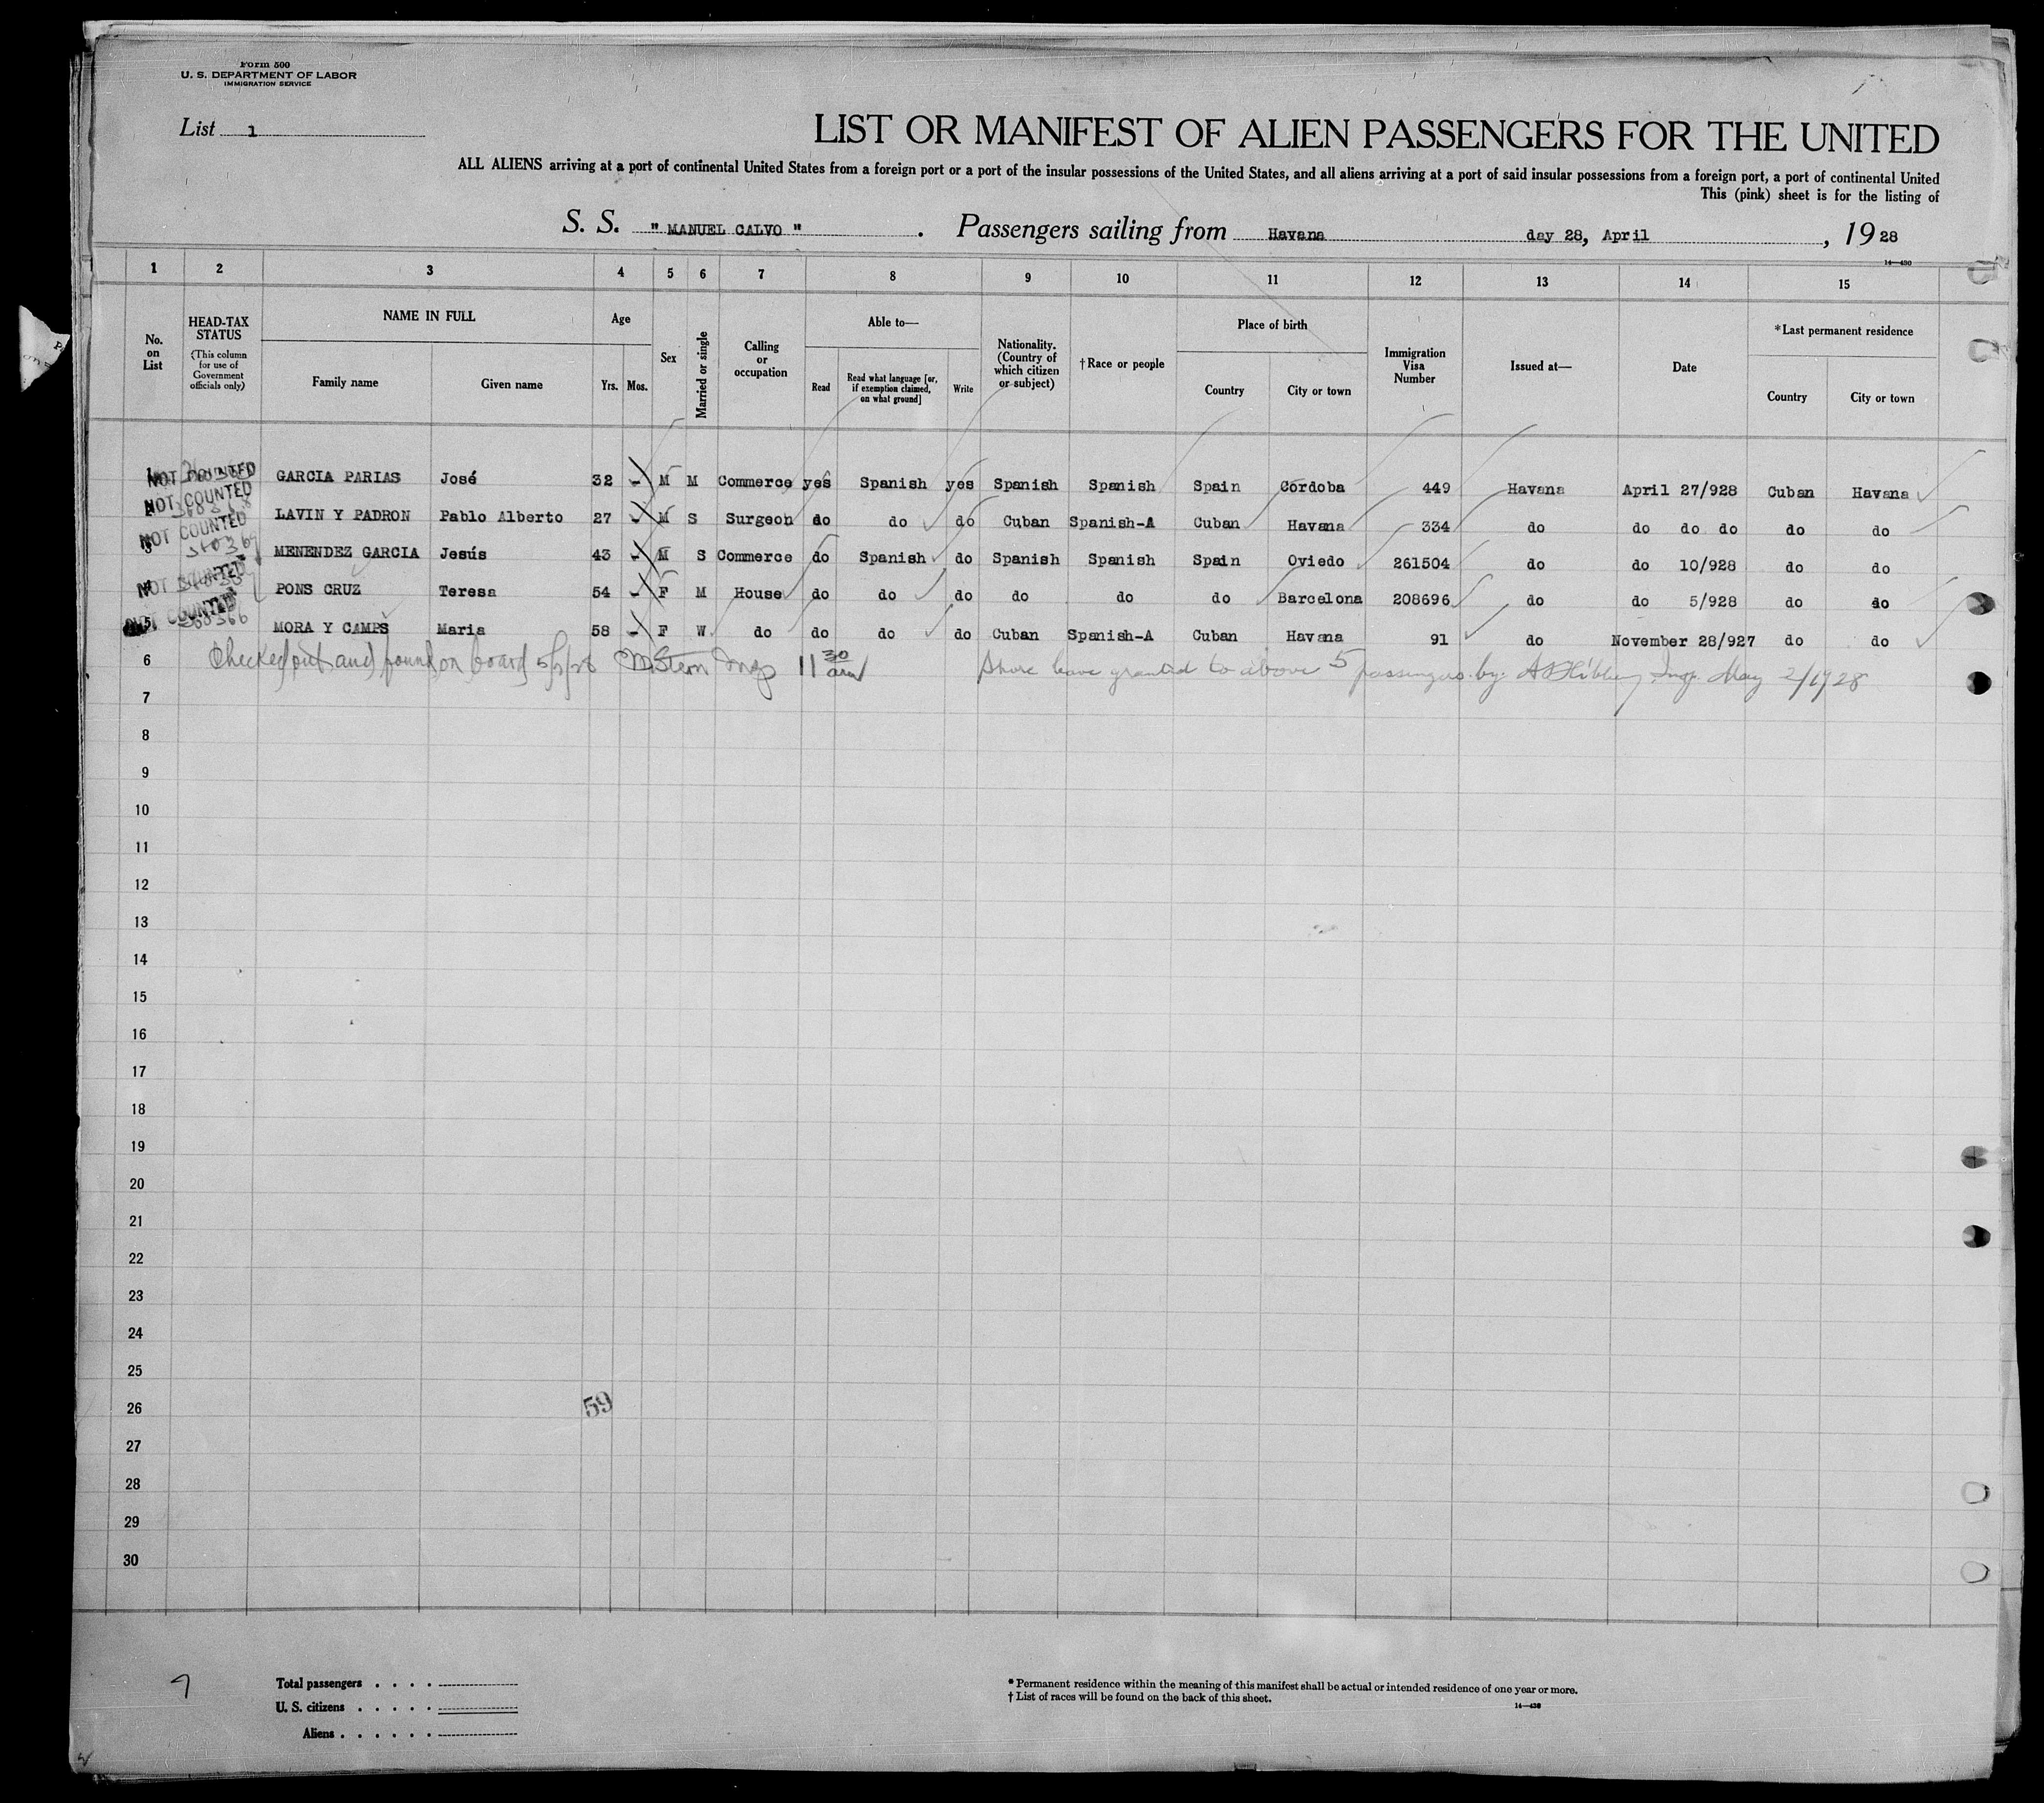 Form 500
U. S. DEPARTMENT OF LABOR
IMMIGRATION SERVICE
List 1
LIST OR MANIFEST OF ALIEN PASSENGERS FOR THE UNITED
ALL ALIENS arriving at a port of continental United States from a foreign port or a port of the insular possessions of the United States, and all aliens arriving at a port of said insular possessions from a foreign port, a port of continental United
This (pink) sheet is for the listing of
S. S. "MANUEL CALVO". Passengers sailing from Havana day 28, April, 19 28
14—430
1 2 3 4 5 6 7 8 9 10 11 12 13 14 15
No. on List
HEAD-TAX STATUS (This column for use of Government officials only)
NAME IN FULL
Family name
Given name
Age
Yrs. Mos.
Sex
Married or single
Calling or occupation
Able to—
Read
Read what language [or, if exemption claimed, on what ground]
Write
Nationality. (Country of which citizen or subject)
†Race or people
Place of birth
Country
City or town
Immigration Visa Number
Issued at—
Date
*Last permanent residence
Country
City or town
1 NOT COUNTED GARCIA PARIAS José 32 - M M Commerce yes Spanish yes Spanish Spanish Spain Cordoba 449 Havana April 27/928 Cuban Havana
NOT COUNTED LAVIN Y PADRON Pablo Alberto 27 - M S Surgeon do do do Cuban Spanish-A Cuban Havana 334 do do do do do do
3 NOT COUNTED MENENDEZ GARCIA Jesús 43 - M S Commerce do Spanish do Spanish Spanish Spain Oviedo 261504 do do 10/928 do do
NOT COUNTED PONS CRUZ Teresa 54 - F M House do do do do do do Barcelona 208696 do do 5/928 do do
5 NOT COUNTED MORA Y CAMPS Maria 58 - F W do do do do Cuban Spanish-A Cuban Havana 91 do November 28/927 do do
6 Checked out and found on board M Stern Insp 11 30 am Shore leave granted to above 5 passengers by Insp. May 2/1928
7
8
9
10
11
12
13
14
15
16
17
18
19
20
21
22
23
24
25
26
59
27
28
29
30
Total passengers
U. S. citizens
Aliens
* Permanent residence within the meaning of this manifest shall be actual or intended residence of one year or more.
† List of races will be found on the back of this sheet.
14—430